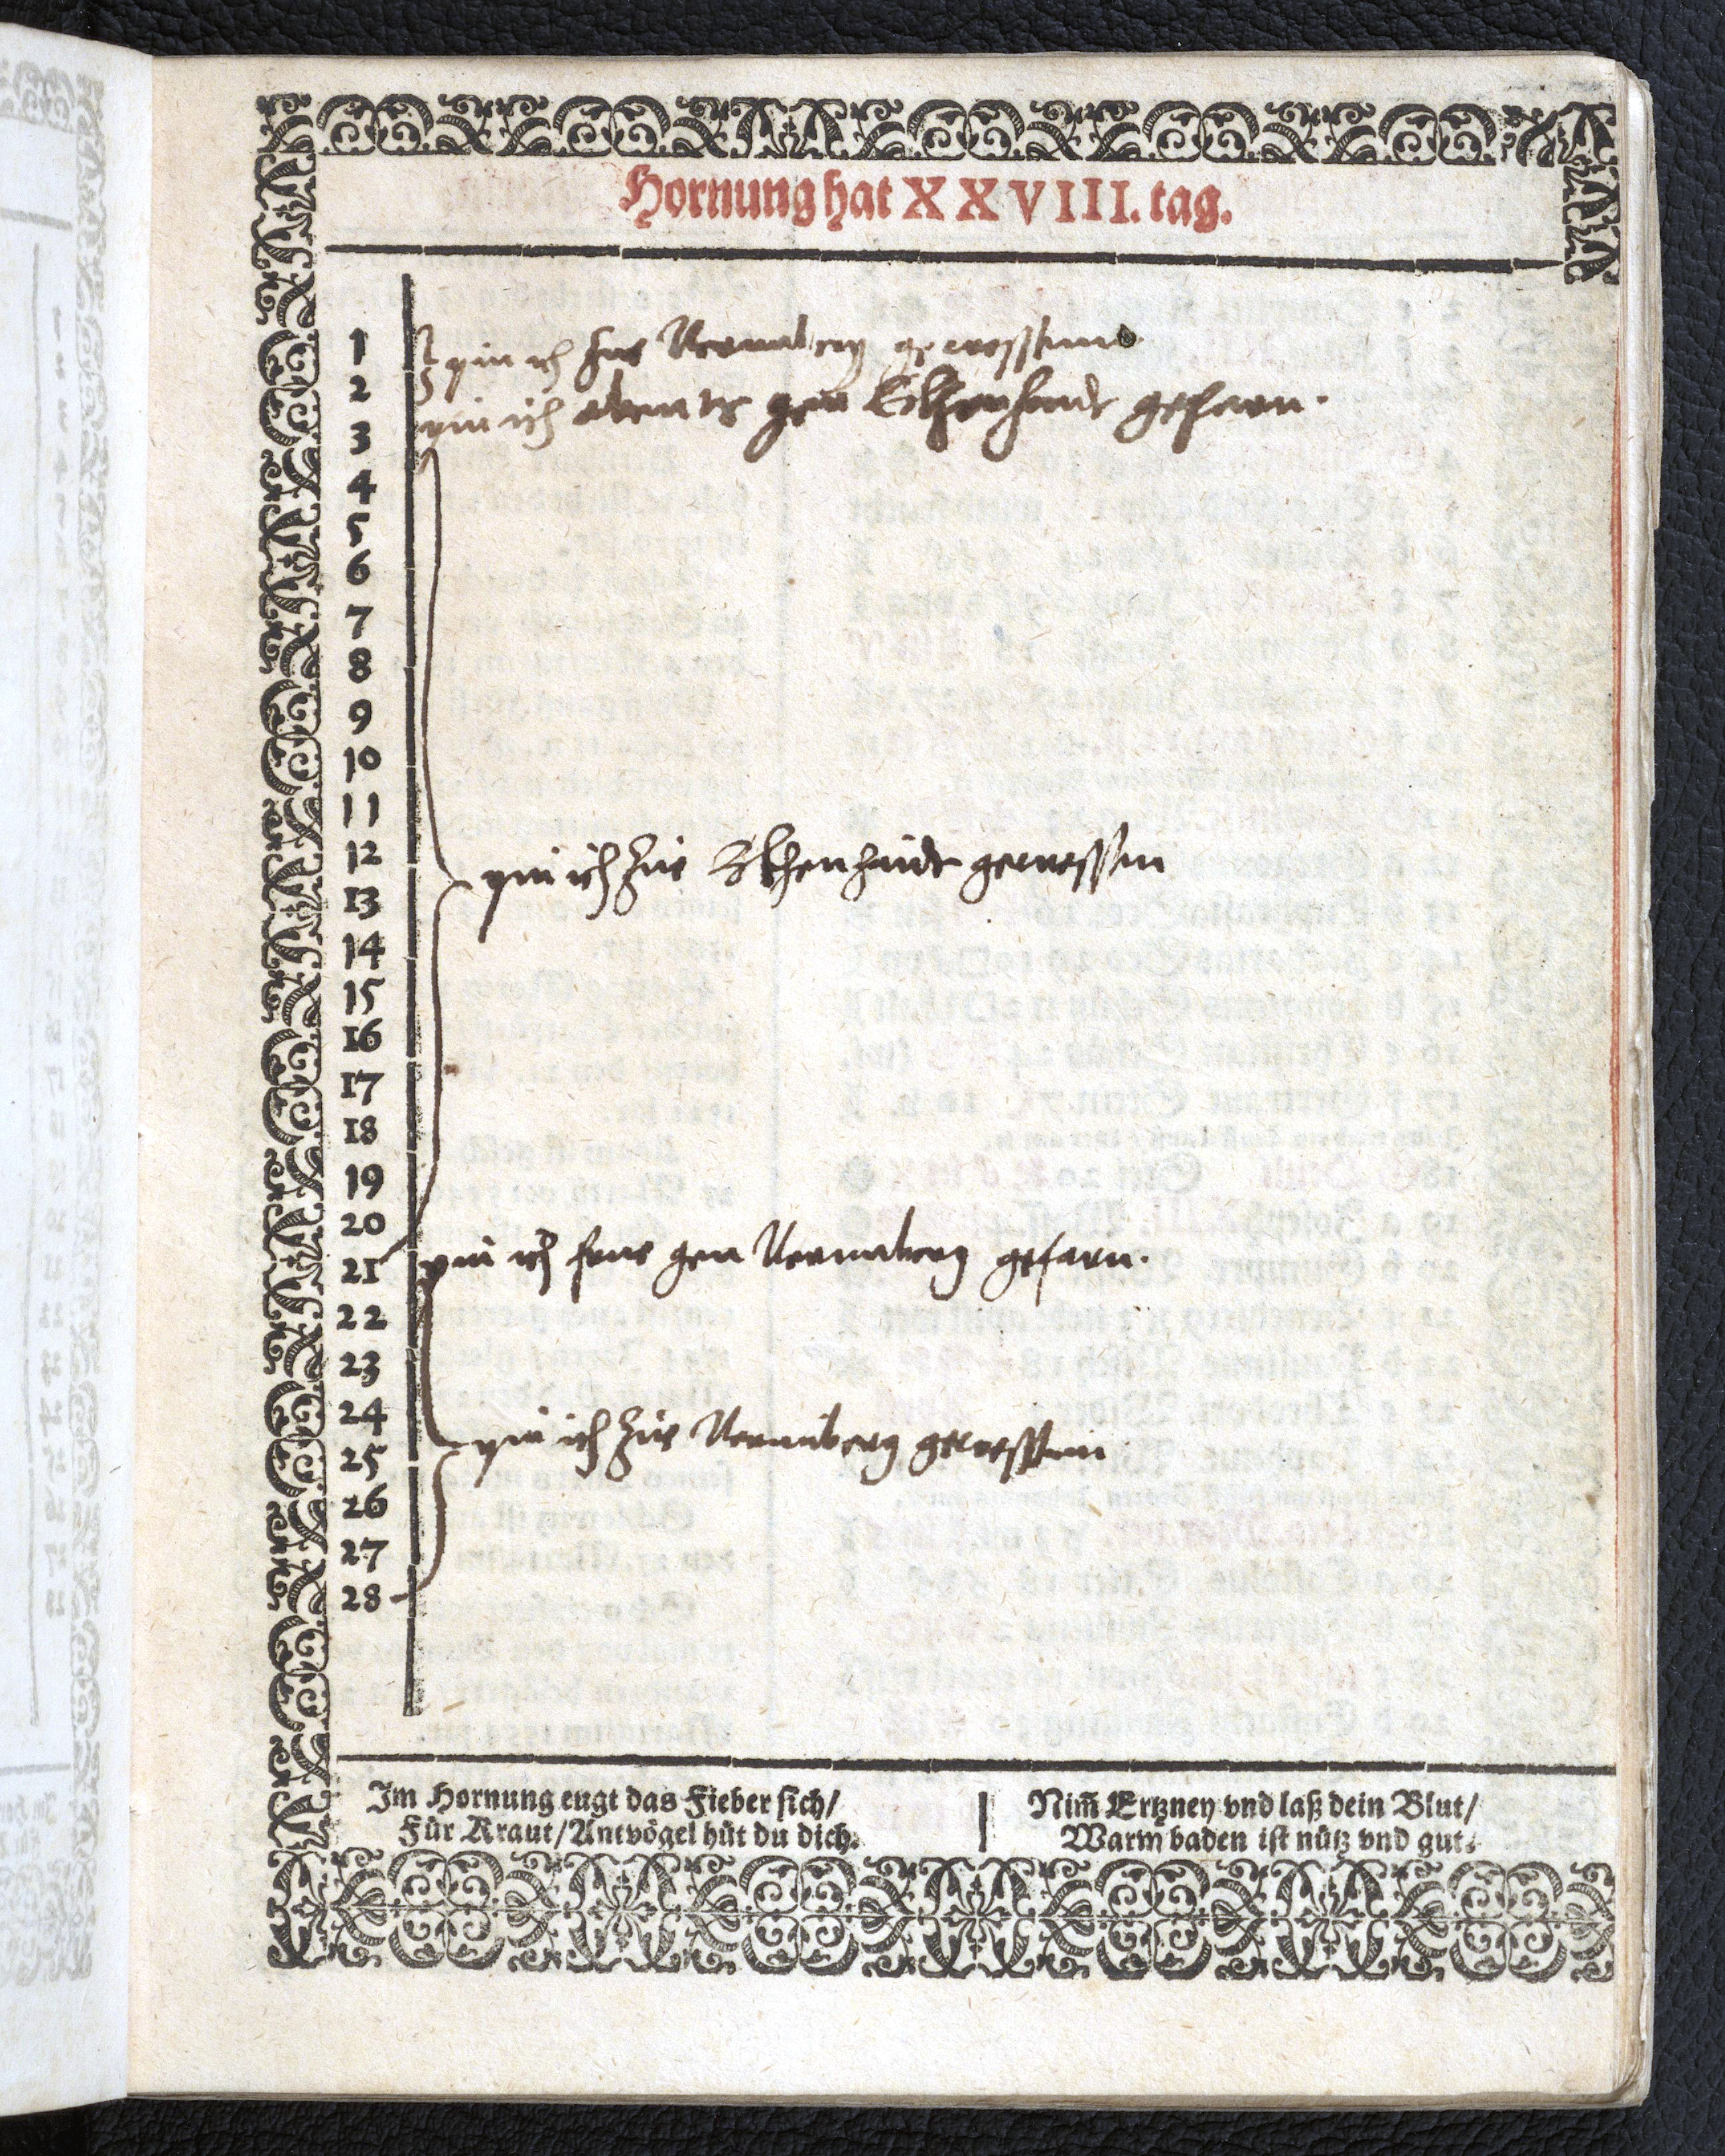 Hornung hat XXVIII. tag.
1
pin ich zu Nermberg gewessenn
2
3
pin ich abents gen Eltzenhaide gefarn.
4
5
6
7
8
9
10
11
12
pin ich zu Eltzenhaide gewessen
13
14
15
16
17
18
19
20
21
pin ich frue gen Nermberg gefarn.
22
23
24
25
pin ich zu Nermberg gewessenn
26
27
28
Im Hornung eugt das Fieber sich/
Für Kraut/Antvögel hüt du dich.
Nim̃ Ertzney vnd laß dein Blut/
Warm baden ist nütz vnd gut.